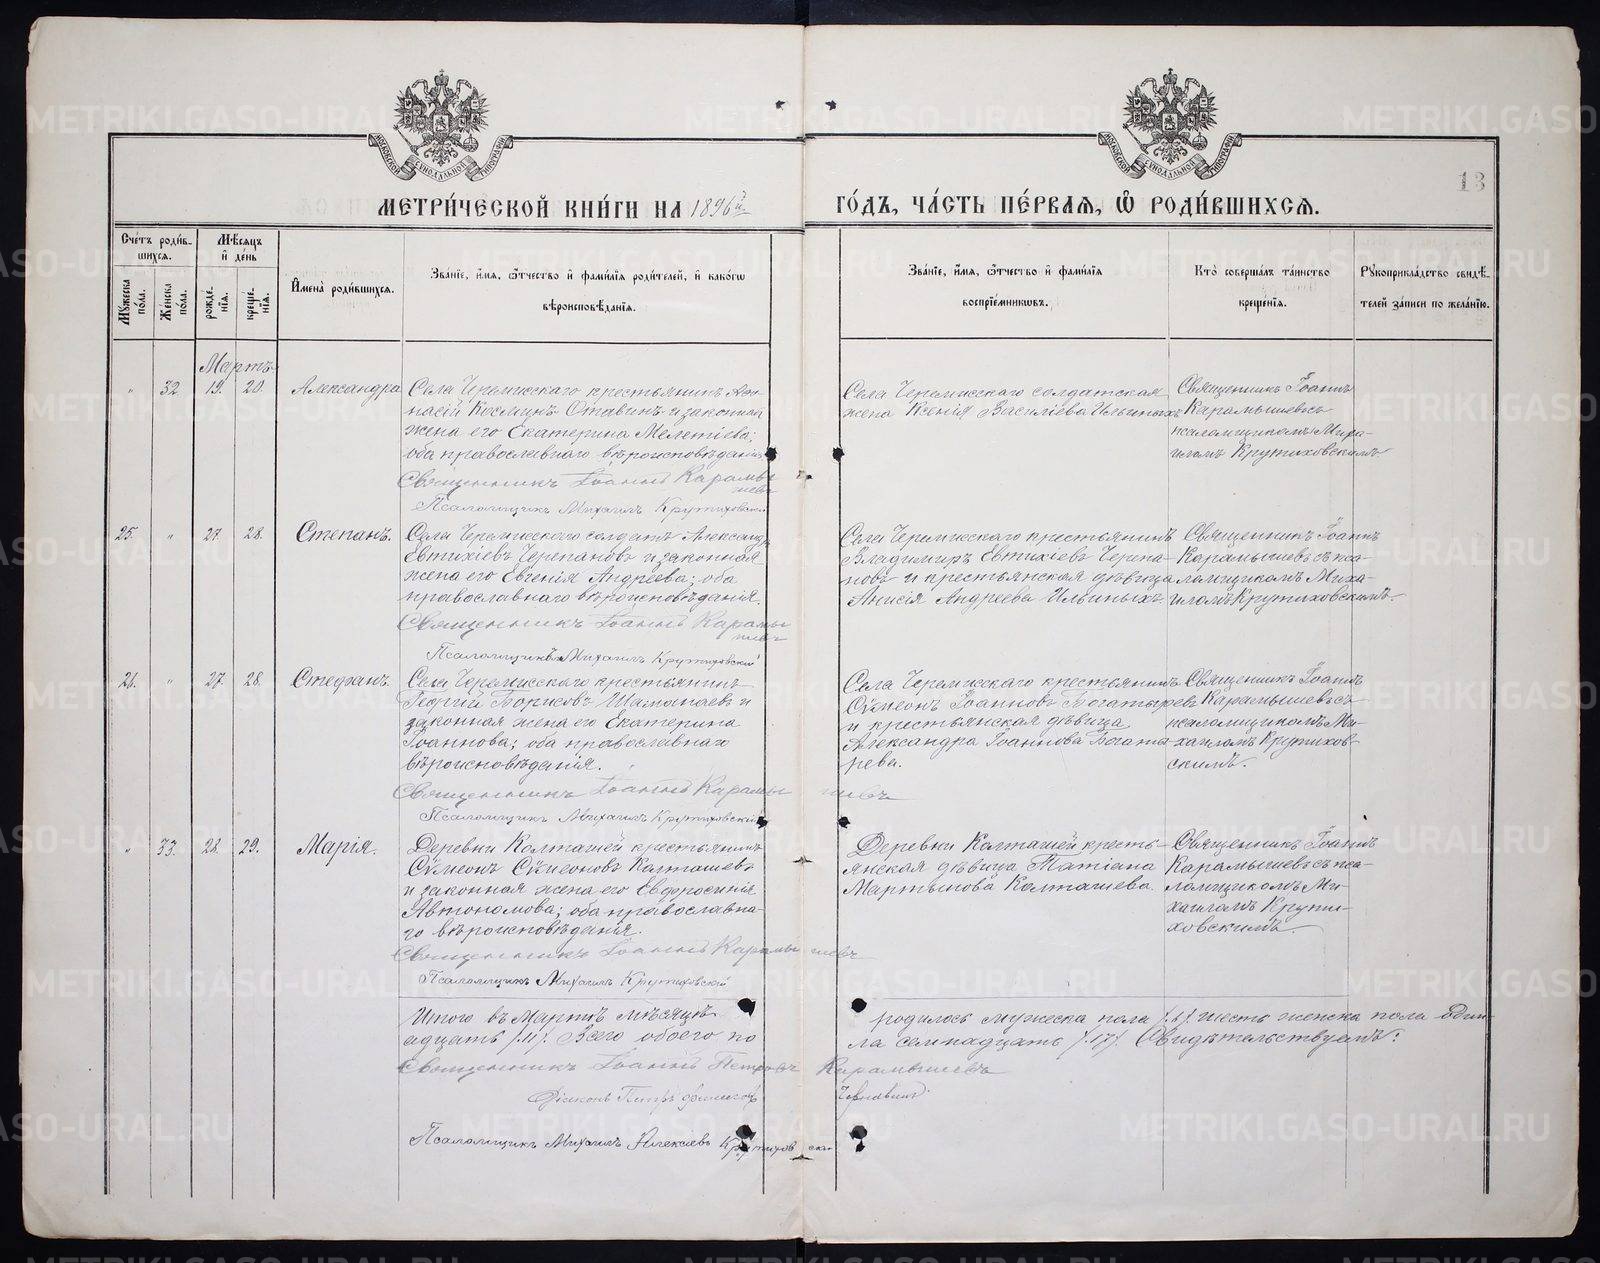 МОСКОВСКОЙ СѴНОДАЛЬНОЙ ТИПОГРАФІИ
МОСКОВСКОЙ СѴНОДАЛЬНОЙ ТИПОГРАФІИ
МЕТРИ́ЧЕСКОЙ КНИ́ГИ НА 1896й
ГО́ДЪ, ЧА́СТЬ ПЕ́РВАЯ, Ѽ РОДИ́ВШИХСЯ.
13
Сче́тъ роди́в-
шихся.
Мѣсяцъ
и де́нь
Мꙋжеска по́ла.
Женска по́ла.
рожде́-нія.
креще́-нія.
Имена̀ роди́вшихся.
Зва́ніе, и́мя, ѻ҆́тчество и фами́лія роди́телей, и како́гѡ
вѣроисповѣ́данія.
Зва́ніе, и́мя, ѻ҆́тчество и фами́лія
воспріе́мникѡвъ.
Кто̀ соверша́лъ та́инство
креще́нія.
Рꙋкоприкла́дство свидѣ́-
телей за́писи по жела́нію.
Мартъ
„ 32 19. 20. Александра
Села Черемисскаго крестьянинъ Аѳа-
насій Косминъ Отавинъ и законная
жена его Екатерина Мелетіева;
оба православнаго вѣроисповѣданія
Священникъ Іоаннъ Карамы
шевъ
Псаломщикъ Михаилъ Крутиховскій
Села Черемисскаго солдатская
жена Ксенія Василіева Ильиныхъ
Священникъ Іоаннъ
Карамышевъ съ
псаломщикомъ Миха-
иломъ Крутиховскимъ.
25. „ 27. 28. Степанъ.
Села Черемисскаго солдатъ Александръ
Евтихіевъ Черепановъ и законная
жена его Евгенія Андреева; оба
православнаго вѣроисповѣданія.
Священникъ Іоаннъ Карамы
шевъ
Псаломщикъ Михаилъ Крутиховскій
Села Черемисскаго крестьянинъ
Владимиръ Евтихіевъ Черепа-
новъ и крестьянская дѣвица
Анисія Андреева Ильиныхъ.
Священникъ Іоаннъ
Карамышевъ съ пса-
ломщикомъ Миха-
иломъ Крутиховскимъ.
26. „ 27. 28. Стефанъ.
Села Черемисскаго крестьянинъ
Георгій Борисовъ Шаманаевъ и
законная жена его Екатерина
Іоаннова; оба православнаго
вѣроисповѣданія.
Священникъ Іоаннъ Карамы шевъ
Псаломщикъ Михаилъ Крутиховскій
Села Черемисскаго крестьянинъ
Сѵмеонъ Іоанновъ Богатыревъ
и крестьянская дѣвица
Александра Іоаннова Богаты-
рева.
Священникъ Іоаннъ
Карамышевъ съ
псаломщикомъ Ми-
хаиломъ Крутихов-
скимъ.
„ 33. 28. 29. Марія.
Деревни Колташей крестьянинъ
Сѵмеонъ Сѵмеоновъ Колташевъ
и законная жена его Евфросинія
Автономова; оба православна-
го вѣроисповѣданія.
Священникъ Іоаннъ Карамы шевъ
Псаломщикъ Михаилъ Крутиховскій
Деревни Колташей кресть-
янская дѣвица Татіана
Мартынова Колташева.
Священникъ Іоаннъ
Карамышевъ съ пса-
ломщикомъ Ми-
хаиломъ Крути-
ховскимъ.
Итого въ Мартѣ мѣсяцѣ родилось мужеска пола /:6:/ шесть женска пола один-
адцать /:11:/. Всего обоего по ла семнадцать /:17:/. Свидѣтельствуемъ:
Священникъ Іоаннъ Петровъ Карамышевъ
Діаконъ Петръ
Псаломщикъ Михаилъ Алексѣевъ Крутиховскій
METRIKI.GASO-URAL.RU